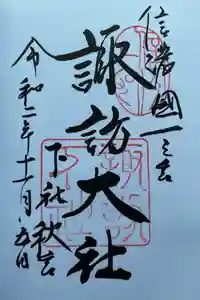 信濃國一之宮
諏訪大社
下社秋宮
令和二年十一月八五日